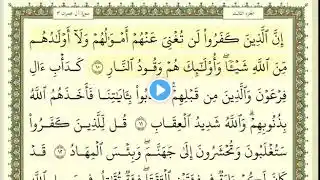 الجزء الثالث
سورة آل عمران ٣
إِنَّ ٱلَّذِينَ كَفَرُوا۟ لَن تُغْنِىَ عَنْهُمْ أَمْوَٰلُهُمْ وَلَآ أَوْلَٰدُهُم
مِّنَ ٱللَّهِ شَيْـًٔا ۖ وَأُو۟لَٰٓئِكَ هُمْ وَقُودُ ٱلنَّارِ ١٠ كَدَأْبِ ءَالِ
فِرْعَوْنَ وَٱلَّذِينَ مِن قَبْلِهِمْ ۚ بِـَٔايَٰتِنَا فَأَخَذَهُمُ ٱللَّهُ
بِذُنُوبِهِمْ ۗ وَٱللَّهُ شَدِيدُ ٱلْعِقَابِ ١١ قُل لِّلَّذِينَ كَفَرُوا۟
سَتُغْلَبُونَ وَتُحْشَرُونَ إِلَىٰ جَهَنَّمَ ۚ وَبِئْسَ ٱلْمِهَادُ ١٢ قَدْ